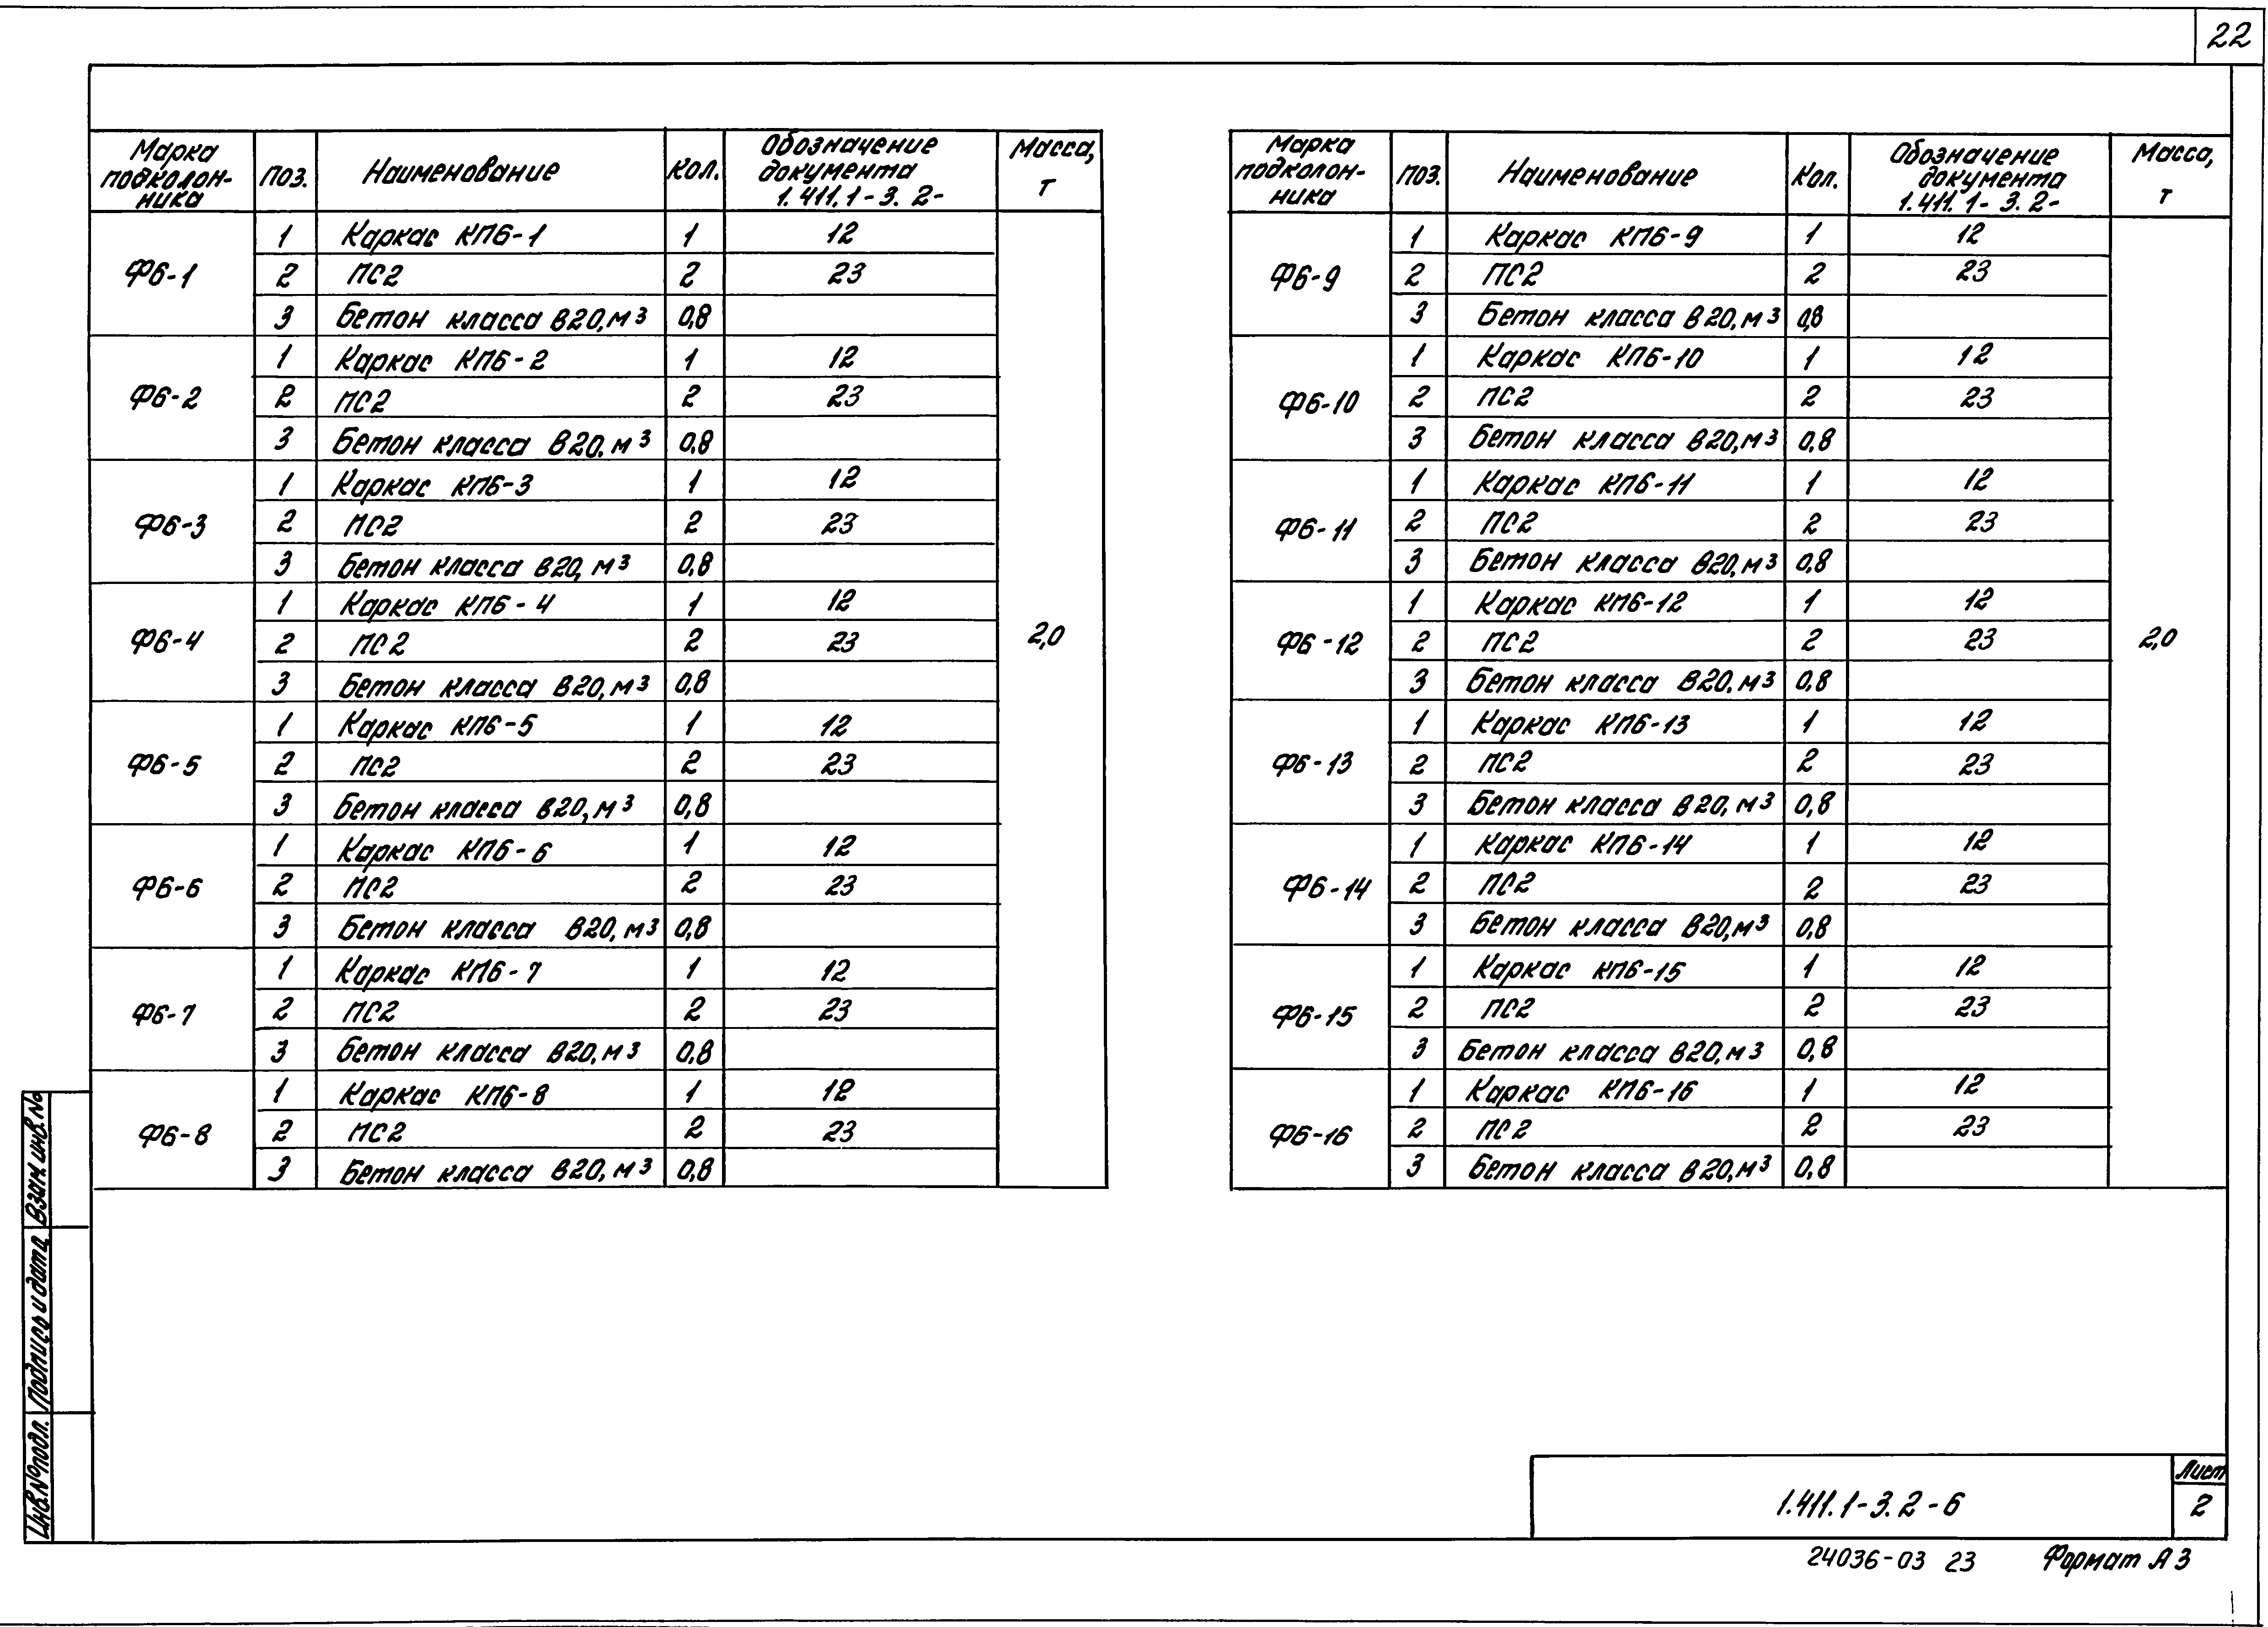 22
Марка подколон- ника Поз. Наименование Кол. Обозначение документа 1.411.1-3.2- Масса, т
Ф6-1 1 Каркас КП6-1 1 12
2 ПС2 2 23
3 Бетон класса В20, м³ 0,8
Ф6-2 1 Каркас КП6-2 1 12
2 ПС2 2 23
3 Бетон класса В20, м³ 0,8
Ф6-3 1 Каркас КП6-3 1 12
2 ПС2 2 23
3 Бетон класса В20, м³ 0,8
Ф6-4 1 Каркас КП6-4 1 12
2 ПС2 2 23 2,0
3 Бетон класса В20, м³ 0,8
Ф6-5 1 Каркас КП6-5 1 12
2 ПС2 2 23
3 Бетон класса В20, м³ 0,8
Ф6-6 1 Каркас КП6-6 1 12
2 ПС2 2 23
3 Бетон класса В20, м³ 0,8
Ф6-7 1 Каркас КП6-7 1 12
2 ПС2 2 23
3 Бетон класса В20, м³ 0,8
Ф6-8 1 Каркас КП6-8 1 12
2 ПС2 2 23
3 Бетон класса В20, м³ 0,8
Марка подколон- ника Поз. Наименование Кол. Обозначение документа 1.411.1-3.2- Масса, т
Ф6-9 1 Каркас КП6-9 1 12
2 ПС2 2 23
3 Бетон класса В20, м³ 0,8
Ф6-10 1 Каркас КП6-10 1 12
2 ПС2 2 23
3 Бетон класса В20, м³ 0,8
Ф6-11 1 Каркас КП6-11 1 12
2 ПС2 2 23
3 Бетон класса В20, м³ 0,8
Ф6-12 1 Каркас КП6-12 1 12
2 ПС2 2 23 2,0
3 Бетон класса В20, м³ 0,8
Ф6-13 1 Каркас КП6-13 1 12
2 ПС2 2 23
3 Бетон класса В20, м³ 0,8
Ф6-14 1 Каркас КП6-14 1 12
2 ПС2 2 23
3 Бетон класса В20, м³ 0,8
Ф6-15 1 Каркас КП6-15 1 12
2 ПС2 2 23
3 Бетон класса В20, м³ 0,8
Ф6-16 1 Каркас КП6-16 1 12
2 ПС2 2 23
3 Бетон класса В20, м³ 0,8
Инв.№ подл. Подпись и дата Взам. инв. №
1.411.1-3.2-6
Лист
2
24036-03 23 Формат А3